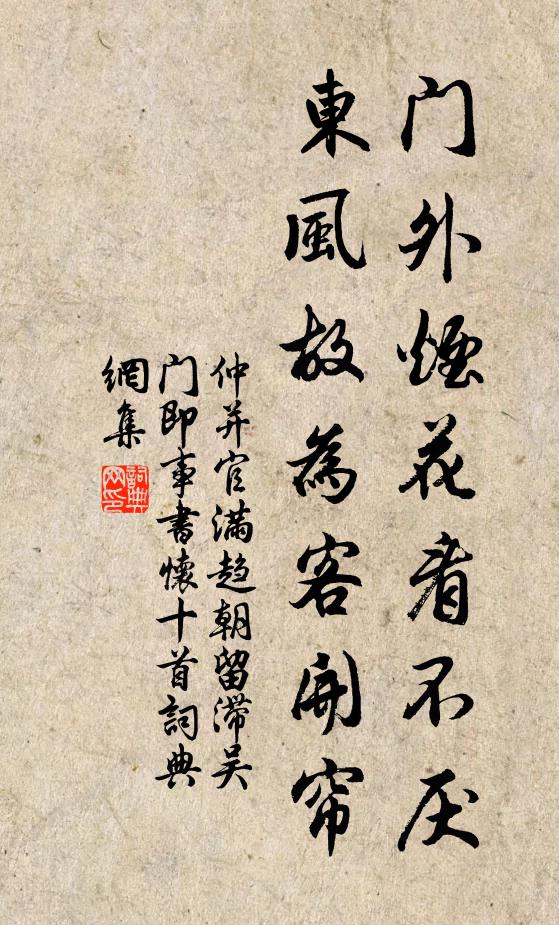 门外煙花看不厌
東風故為客開帘
仲并官滿趋朝留滞吴
门即事書懷十首詞典
網集
詞典
网印